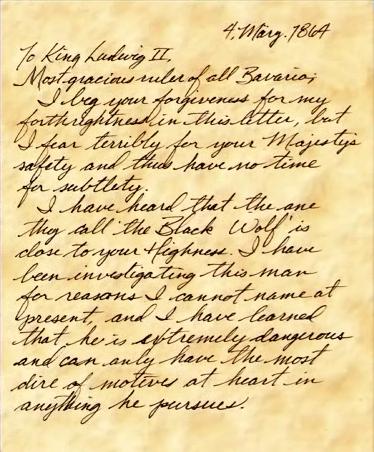 4. Märg. 1864
To King Ludwig II,
Most gracious ruler of all Bavaria;
I beg your forgiveness for my
forthrightness in this letter, but
I fear terribly for your Majesty's
safety and thus have no time
for subtlety.
I have heard that the one
they call 'the Black Wolf' is
close to your Highness. I have
been investigating this man
for reasons I cannot name at
present, and I have learned
that he is extremely dangerous
and can only have the most
dire of motives at heart in
anything he pursues.